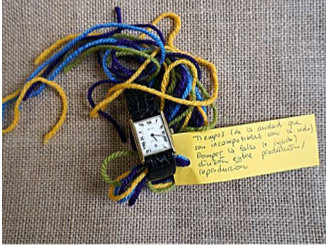 Tiempos (de la sociedad que
son incompatibles con la vida)
Romper la falsa (e injusta)
división entre producción/
reproducción